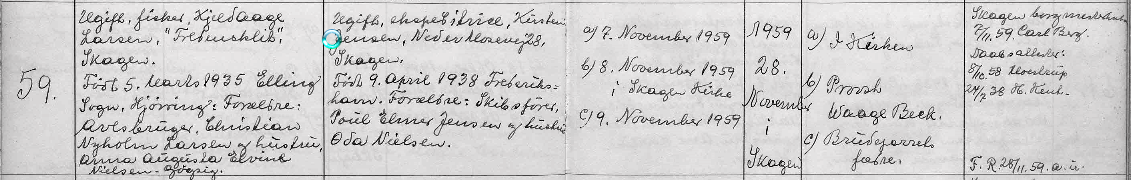 59.
Ugift, fisker, Kjeld Aage
Larsen, "Frbenchlib",
Skagen.
Født 5. Marts 1935 Elling
Sogn, Hjörring: Forældre:
Avlsbruger, Christian
Nyholm Larsen og hustru,
Anna Augusta Elvine
Nielsen
Ugift, ekspeditrice, Kirsten
Jensen, Nedermosevej 28,
Skagen.
Født 9. April 1938 Frederiks-
havn. Forældre: Skibsfører,
Poul Elmer Jensen og hustru
Oda Nielsen.
a) 7. November 1959
b) 8. November 1959
i Skagen Kirke
c) 9. November 1959
1959
28.
November
i
Skagen
a) I Kirken
b) Provst
Waage Beck.
c) Brudeparrets
fædre.
Skagen borgmesterkontor
7/11. 59 Carl Berg.
Daabsattester:
F. R. 28/11. 59. a. u.